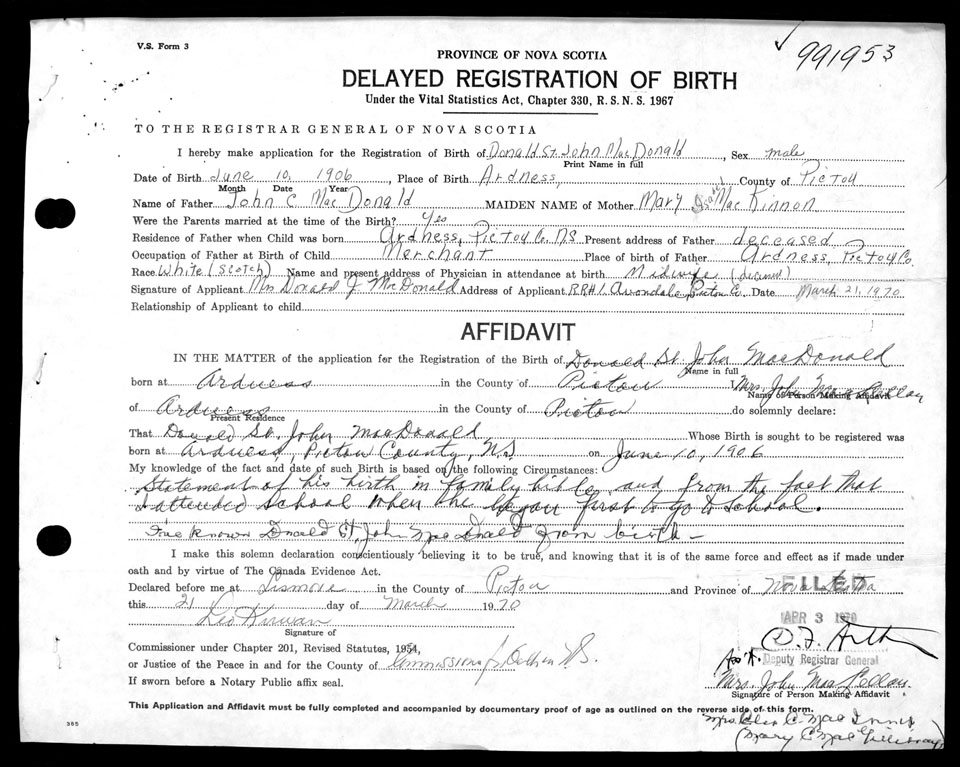 V.S. Form 3
991953
PROVINCE OF NOVA SCOTIA
DELAYED REGISTRATION OF BIRTH
Under the Vital Statistics Act, Chapter 330, R. S. N. S. 1967
TO THE REGISTRAR GENERAL OF NOVA SCOTIA
I hereby make application for the Registration of Birth of Donald St. John MacDonald, Sex male
Print Name in full
Date of Birth June 10, 1906, Place of Birth Ardness, County of Pictou
Month Date Year
Name of Father John C MacDonald MAIDEN NAME of Mother Mary MacKinnon
Were the Parents married at the time of the Birth? Yes
Residence of Father when Child was born Ardness, Pictou Co. NS Present address of Father deceased
Occupation of Father at Birth of Child Merchant Place of birth of Father Ardness, Pictou Co
Race White (Scotch) Name and present address of Physician in attendance at birth Midwife (deceased)
Signature of Applicant Mrs Donald J MacDonald Address of Applicant RR#1 Avondale, Pictou Co. Date March 21, 1970
Relationship of Applicant to child
AFFIDAVIT
IN THE MATTER of the application for the Registration of the Birth of Donald St. John MacDonald
Name in full
born at Ardness in the County of Pictou Mrs. John MacLellan
Name of Person Making Affidavit
of Ardness in the County of Pictou do solemnly declare:
Present Residence
That Donald St. John MacDonald Whose Birth is sought to be registered was
born at Ardness, Pictou County, N.S. on June 10, 1906
My knowledge of the fact and date of such Birth is based on the following Circumstances:
Statement of his birth in family bible and from the fact that
I attended school when he began first to go to school.
I've known Donald St. John MacDonald from birth -
I make this solemn declaration conscientiously believing it to be true, and knowing that it is of the same force and effect as if made under
oath and by virtue of The Canada Evidence Act.
Declared before me at Lismore in the County of Pictou and Province of Nova Scotia
FILED
this 21 day of March 1970
APR 3 1970
Leo Kirwan
Signature of
Commissioner under Chapter 201, Revised Statutes, 1954,
Deputy Registrar General
or Justice of the Peace in and for the County of Commissioner for Oath in N.S.
If sworn before a Notary Public affix seal.
Mrs. John MacLellan
Signature of Person Making Affidavit
This Application and Affidavit must be fully completed and accompanied by documentary proof of age as outlined on the reverse side of this form.
C. MacInnis
(Mary C MacGillivray)
385